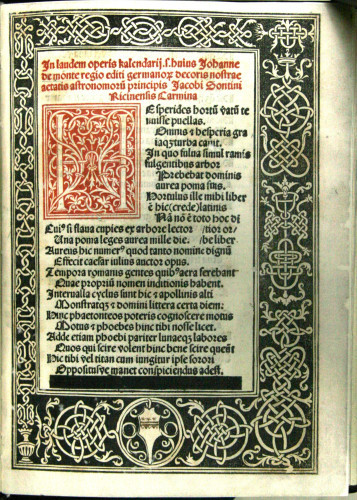 In laudem operis kalendarij.s.huius Johanne
de monte regio editi germanoꝝ decoris nostrae
aetatis astronomorū principis Jacobi Sentini
Ricinensis Carmina
H
Esperides hortū vatū te
nuisse puellas.
Omnis & hesperia gra
iaqꝫ turba canit.
In quo fulua simul ramis
fulgentibus arbor
Praebebat dominis
aurea poma suis.
Hortulus ille mihi liber
ē hic(crede)latinis
Nā nō ē toto hoc di
Cui⁹ si flaua cupies ex arbore lector /tior or/
Una poma leges aurea mille die. /be liber
Aureus hic numer⁹ quod tanto nomine dignū
Effecit caesar iulius auctor opus.
Tempora romanas gentes quib⁹ aera ferebant
Quae propriū nomen inditionis habent.
Interualla cyclus sunt hic & apollinis alti
Monstratqꝫ & domini littera certa diem:
Hinc phaetonteos poteris cognoscere motus
Motus & phoebes hinc tibi nosse licet.
Adde etiam phoebi pariter lunaeqꝫ labores
Quos qui scire volent hinc bene scire queūt
Hic tibi vel titan cum iungitur ipse sorori
Oppositusve manet conspiciendus adest.